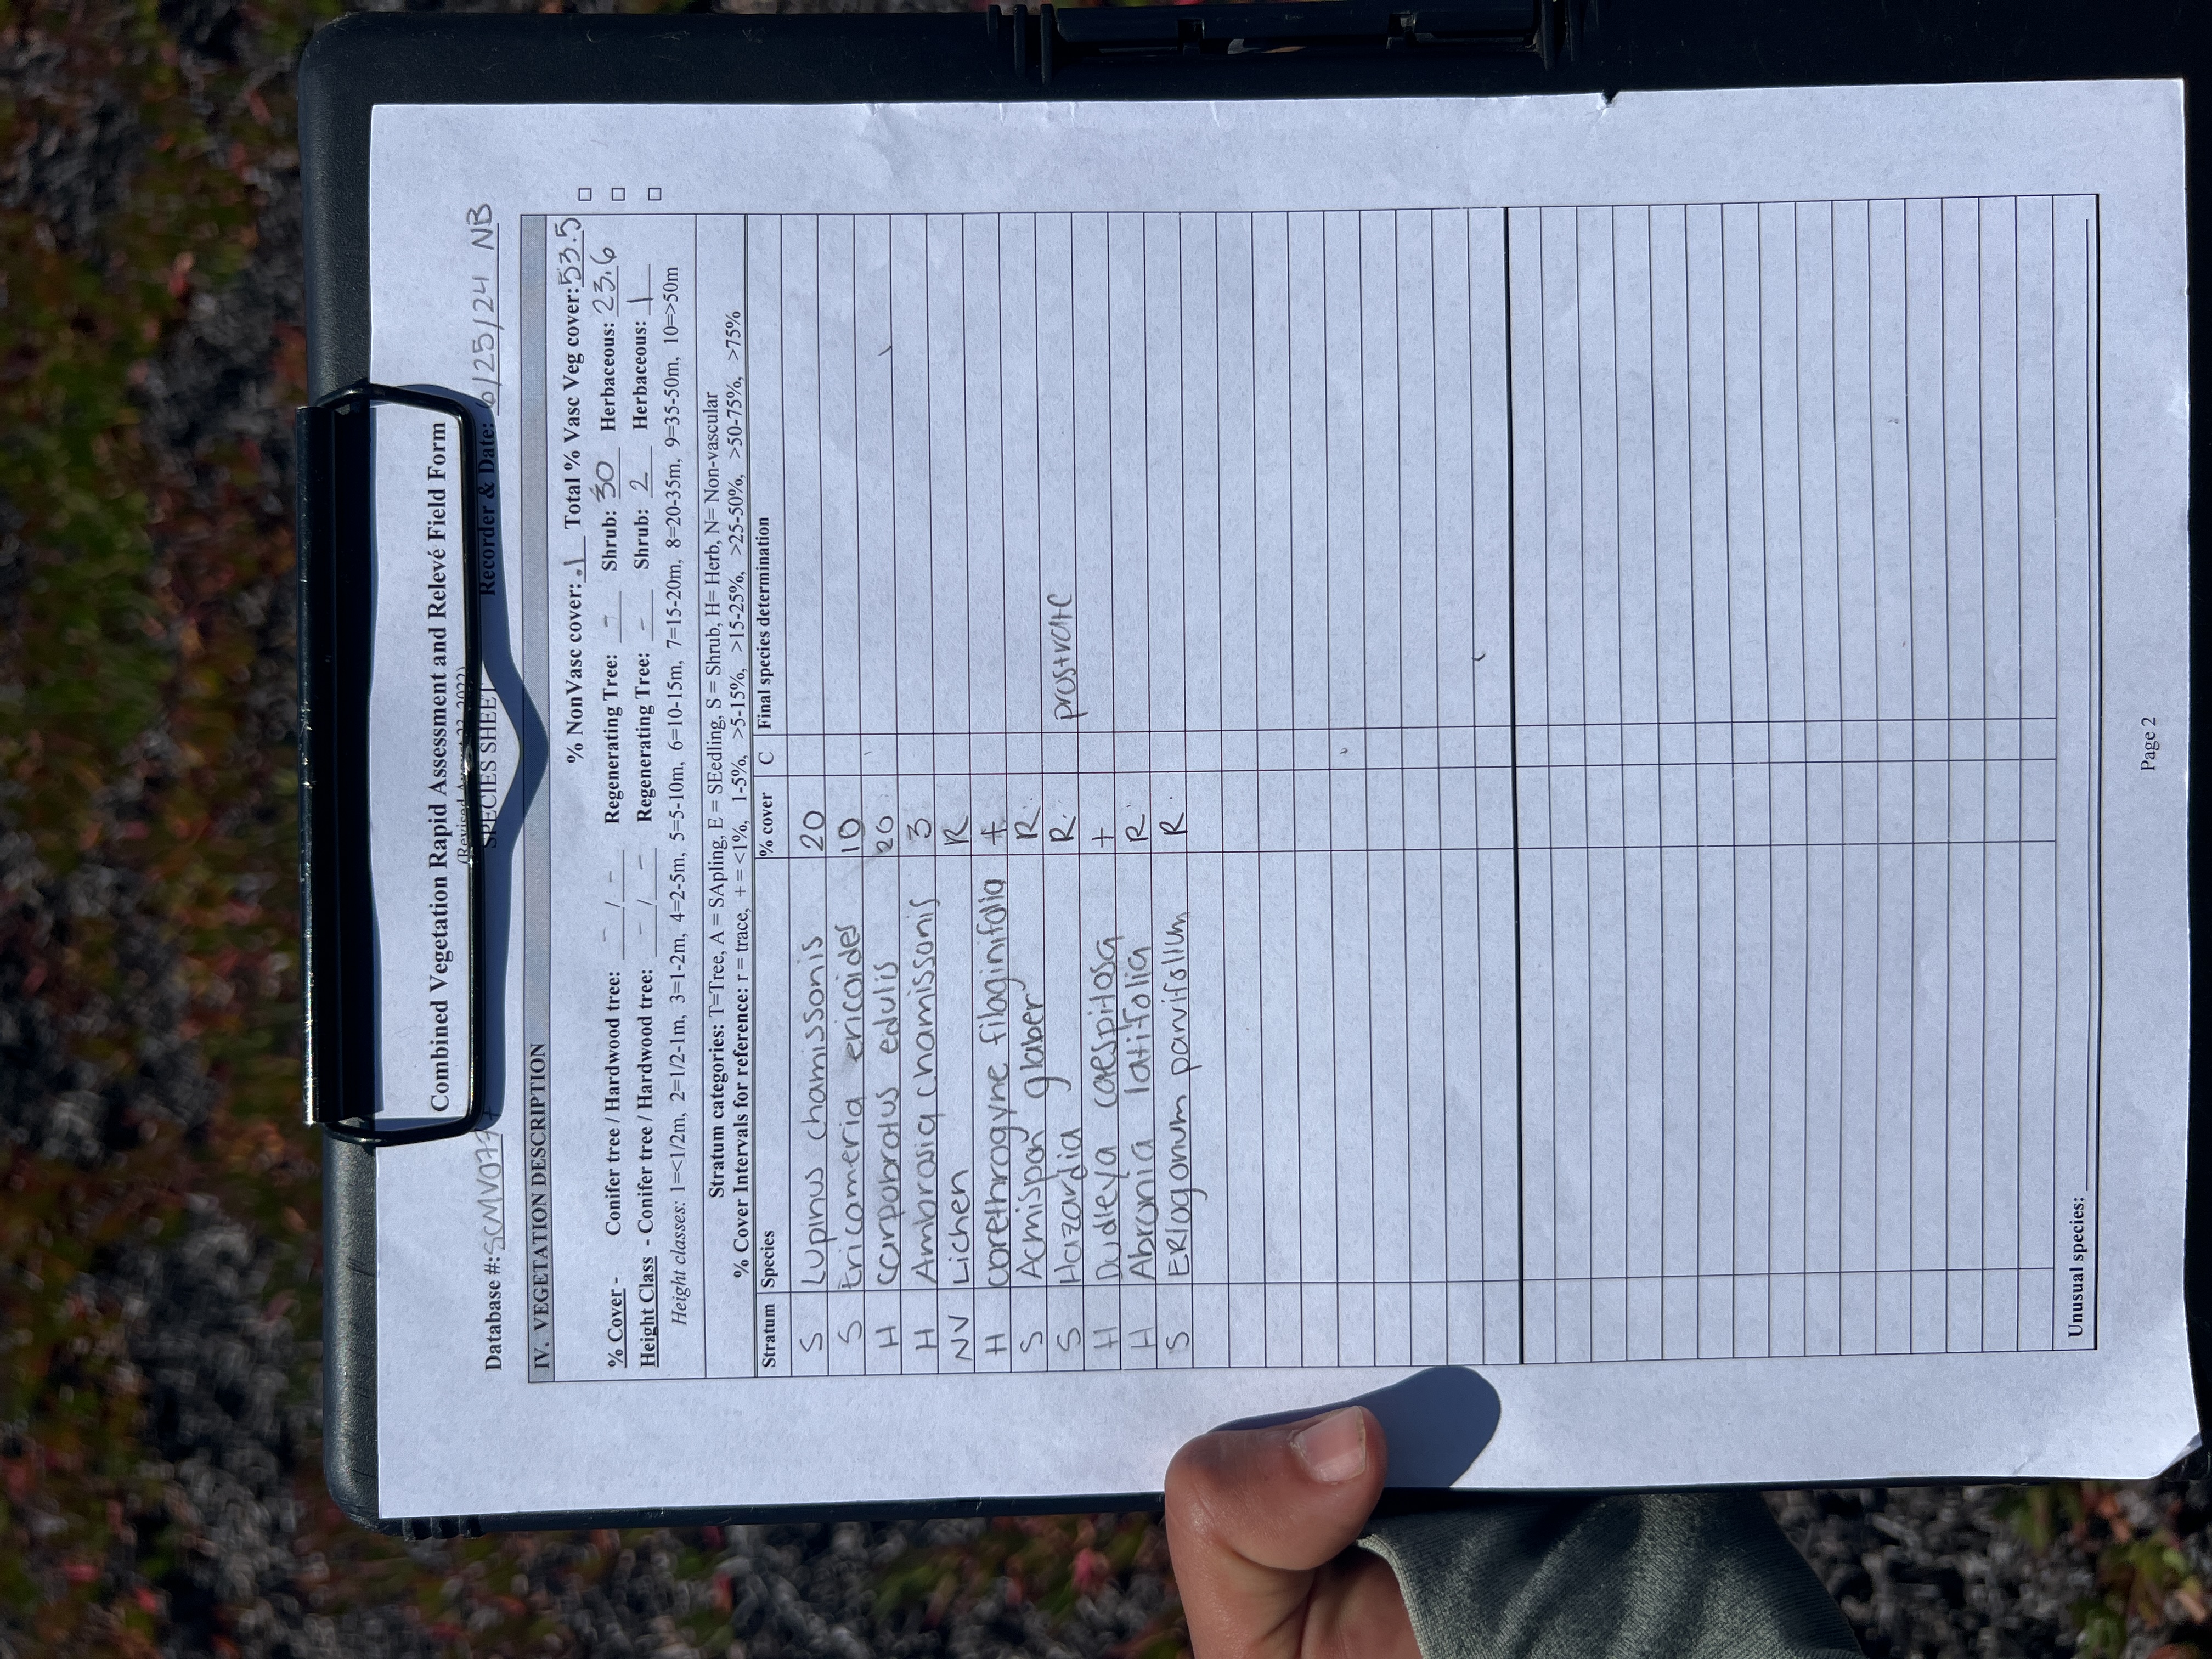 Combined Vegetation Rapid Assessment and Relevé Field Form
(Revised August 23, 2022)
SPECIES SHEET
Database #: Recorder & Date: 6/25/24 NB
IV. VEGETATION DESCRIPTION
% NonVasc cover: .1 Total % Vasc Veg cover: 53.5
% Cover - Conifer tree / Hardwood tree: - / - Regenerating Tree: - Shrub: 30 Herbaceous: 23.6
Height Class - Conifer tree / Hardwood tree: - / - Regenerating Tree: - Shrub: 2 Herbaceous: 1
Height classes: 1=<1/2m, 2=1/2-1m, 3=1-2m, 4=2-5m, 5=5-10m, 6=10-15m, 7=15-20m, 8=20-35m, 9=35-50m, 10=>50m
Stratum categories: T=Tree, A = SApling, E = SEedling, S = Shrub, H= Herb, N= Non-vascular
% Cover Intervals for reference: r = trace, + = <1%, 1-5%, >5-15%, >15-25%, >25-50%, >50-75%, >75%
Stratum Species % cover C Final species determination
S Lupinus chamissonis 20
S Ericameria ericoides 10
H Carpobrotus edulis 20
H Ambrosia chamissonis 3
NV Lichen R
H corethrogyne filaginifolia +
S Acmispon glaber R
S Hazardia R prostrate
H Dudleya caespitosa +
H Abronia latifolia R
S ERiogonum parvifolium R
Unusual species:
Page 2